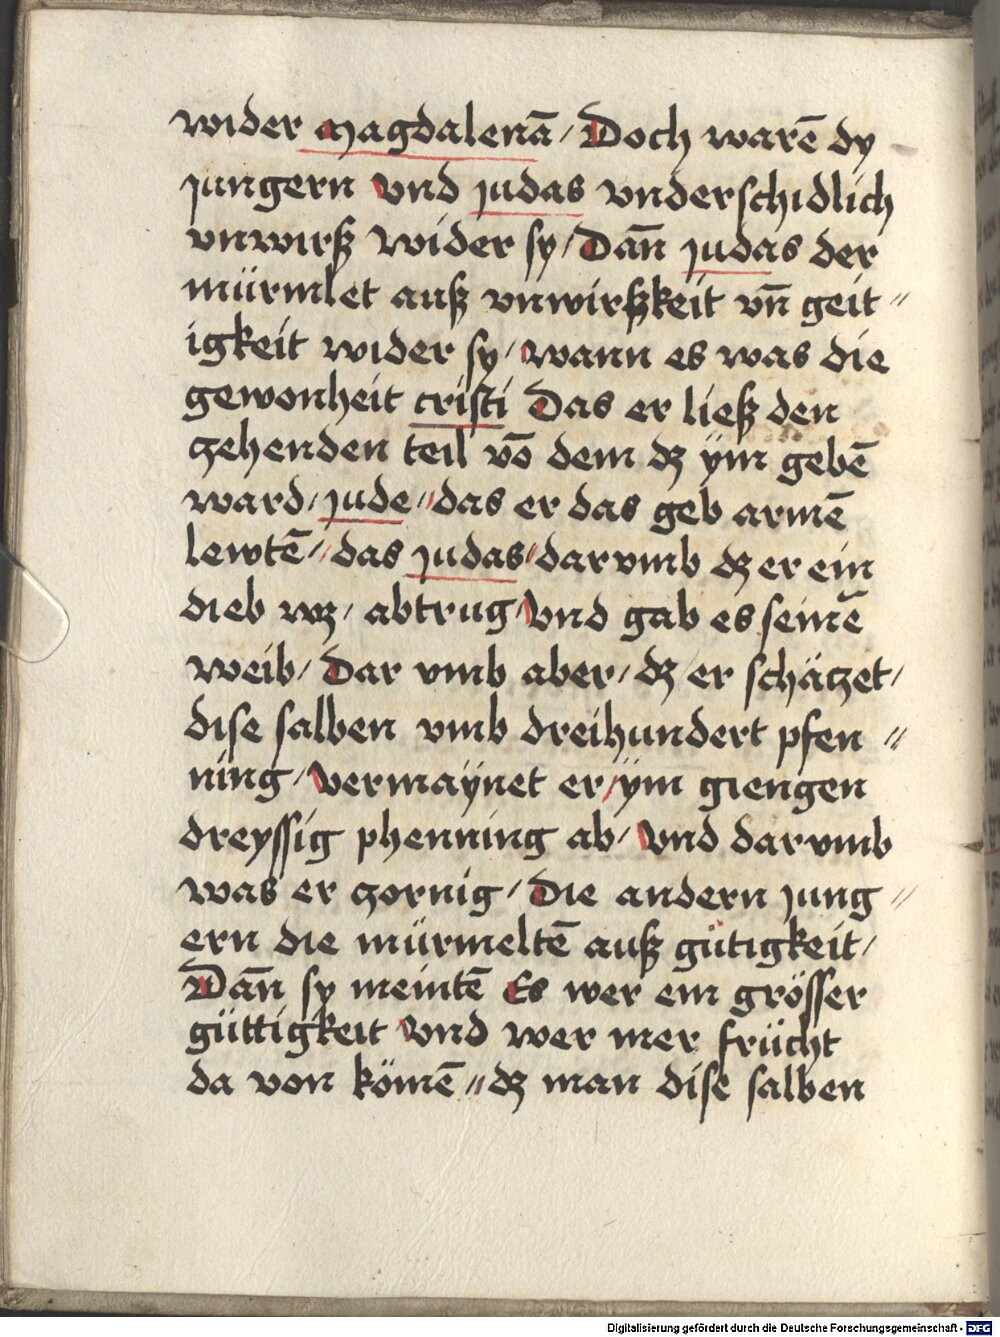 wider Magdalenā / Doch warē dy
jungern vnd judas vnderschidlich
vnwirß wider sy / Dan̄ judas der
mürmlet auß vnwirßkeit vn̄ geit〃
igkeit wider sy / wann es was die
gewonheit cristi Das er ließ den
zehenden teil vō dem dz ÿm gebē
ward / jude〃das er das geb armē
lewtē〃das judas〃darvmb dz er ein
dieb wz / abtrug / Vnd gab es seinē
weib / Dar vmb aber / dz er schätzet /
dise salben vmb dreihundert pfen〃
ning / Vermaÿnet er / ÿm giengen
dreyssig phenning ab / Vnd darvmb
was er zornig / Die andern jung〃
ern die mürmeltē auß gütigkeit /
Dan̄ sy meintē Es wer ein grösser
güttigkeit Vnd wer mer frücht
da von kömē〃dz man dise salben
Digitalisierung gefördert durch die Deutsche Forschungsgemeinschaft - DFG